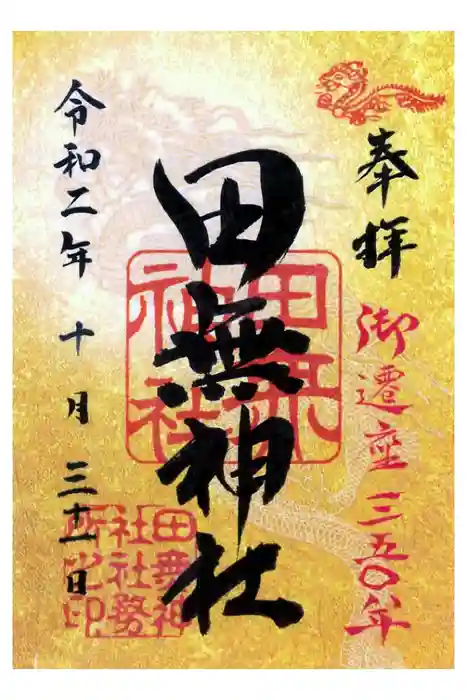 奉拝
御遷座三五〇年
田無神社
田無神社
令和二年十月三十一日
田無神
社社務
所之印